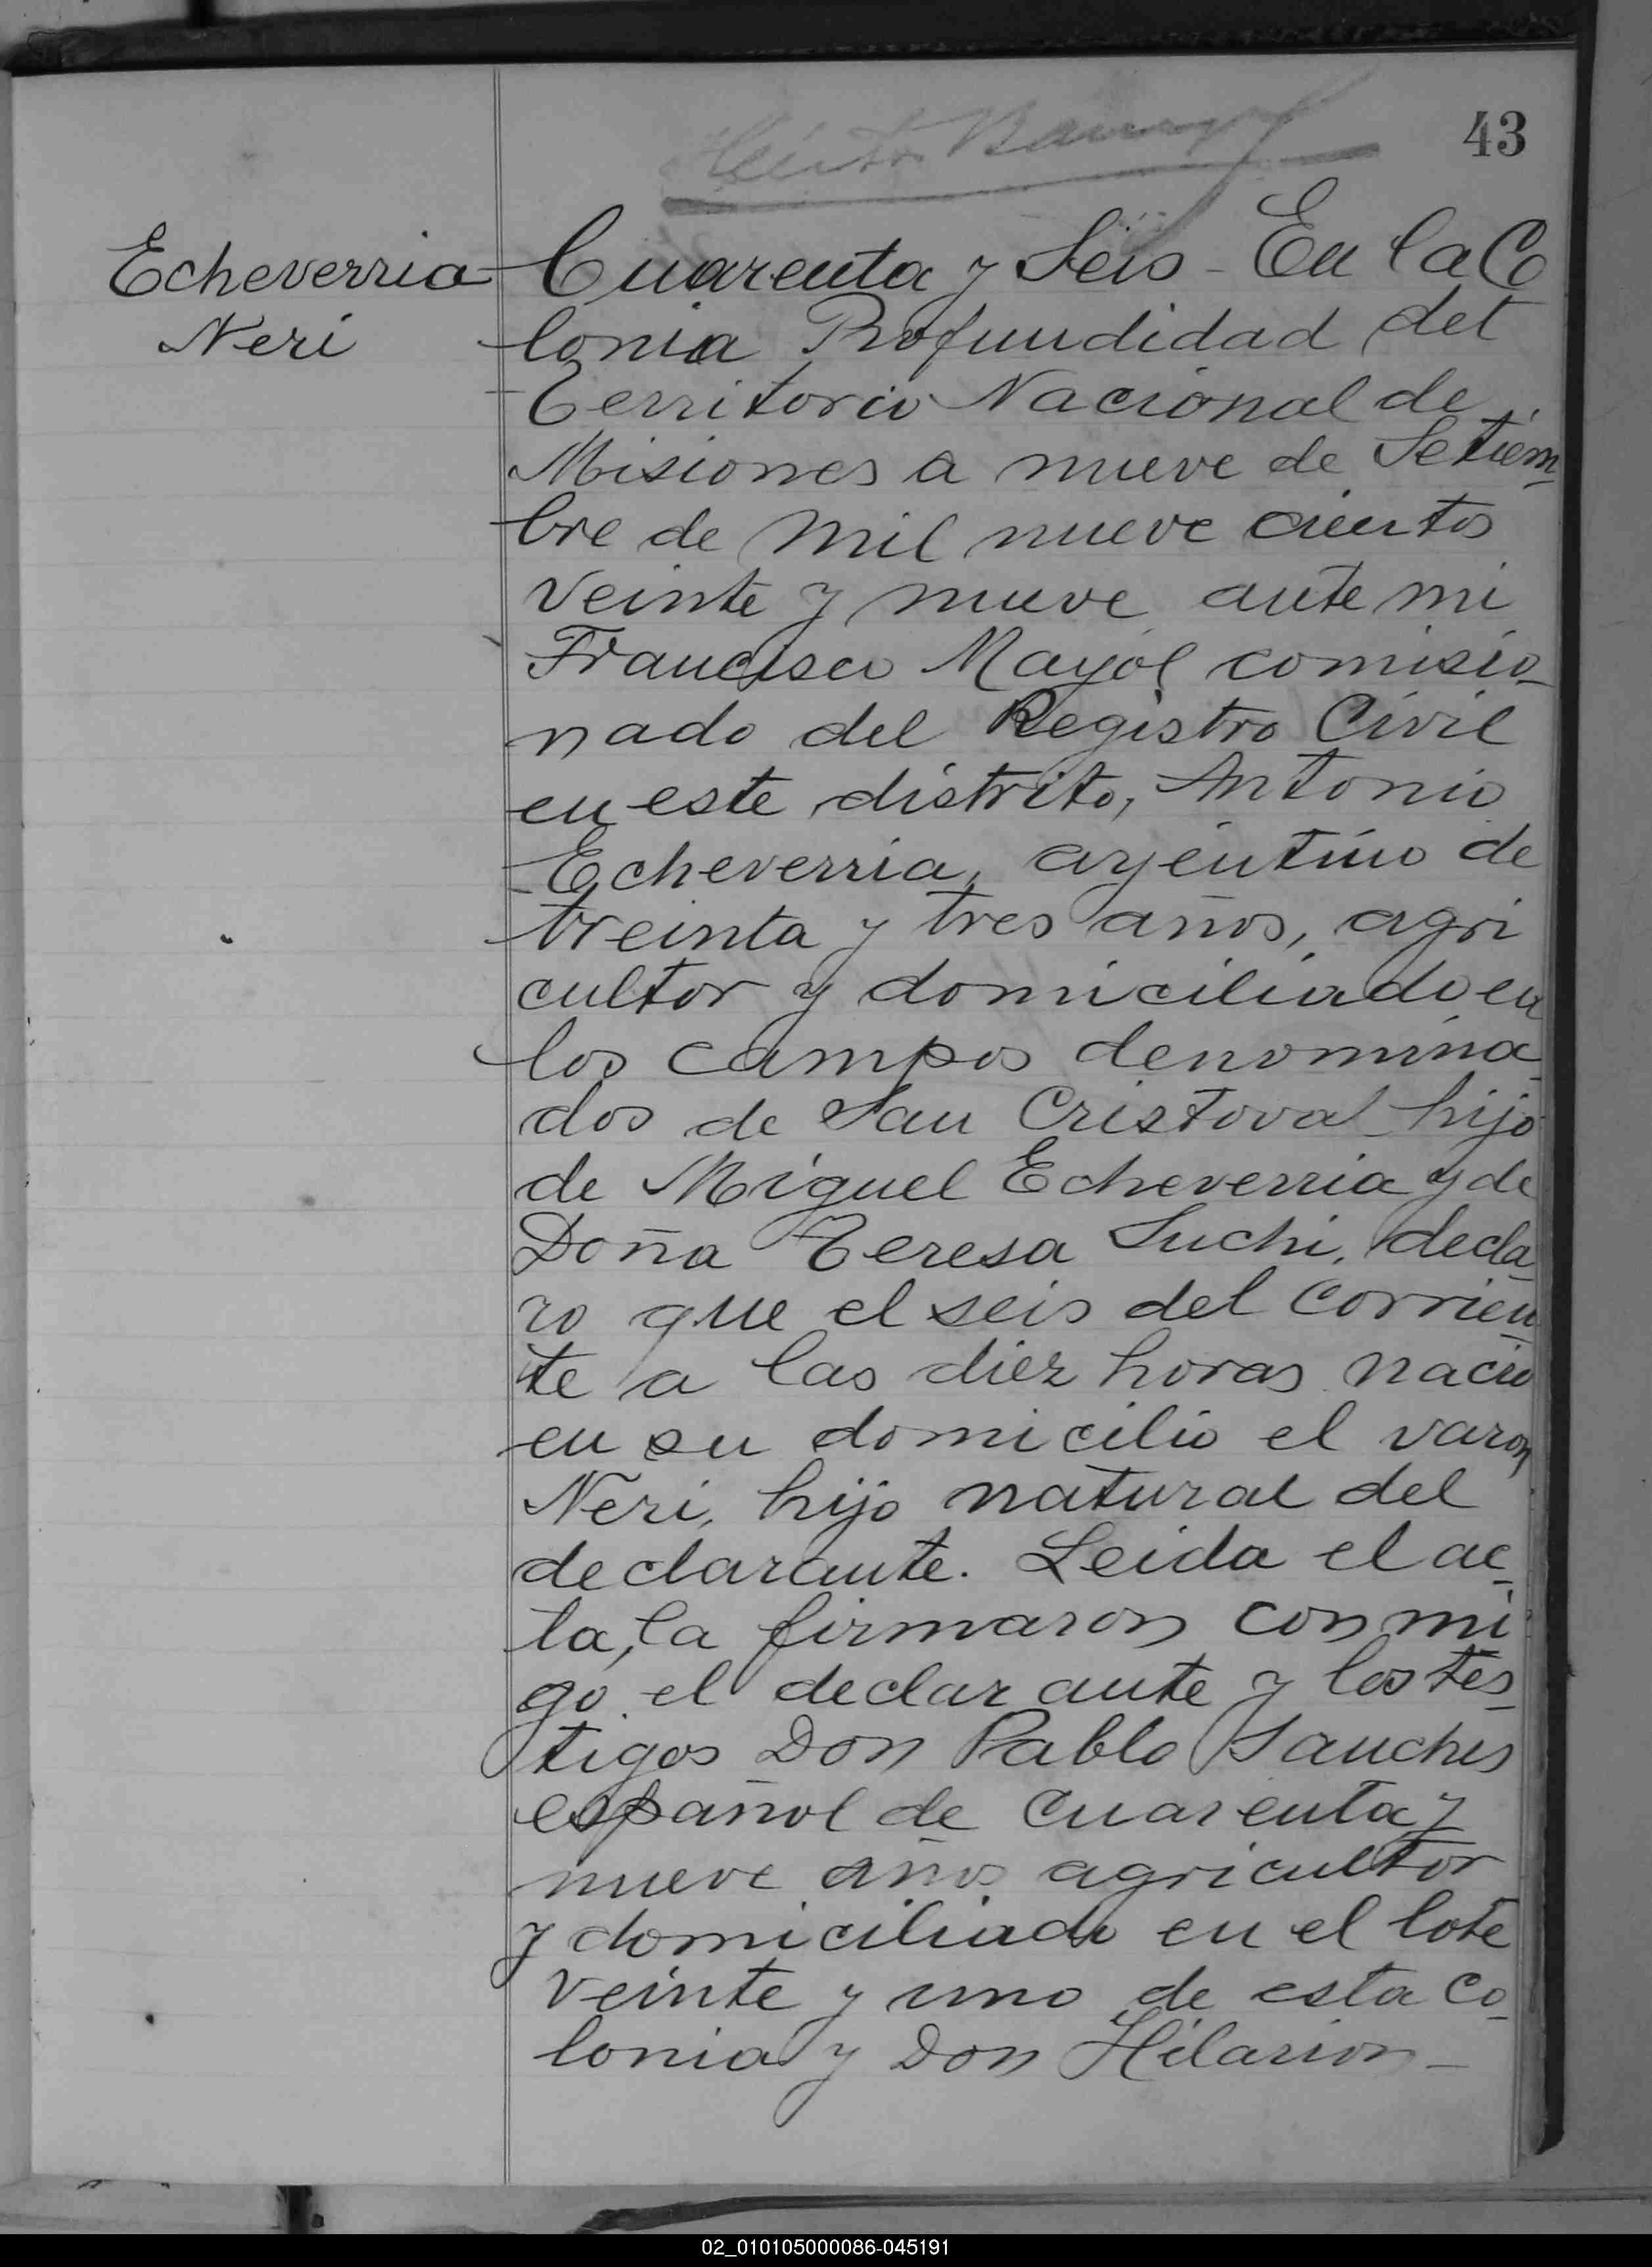 43
Echeverria
Neri
Cuarenta y Seis - En la Co
lonia Profundidad del
Territorio Nacional de
Misiones a nueve de Setiem_
bre de mil nueve cientos
veinte y nueve ante mi
Francisco Mayol comisio_
nado del Registro Civil
en este distrito, Antonio
Echeverria, arjentino de
treinta y tres años, agri
cultor y domiciliado en
los campos denomina_
dos de San Cristoval hijo
de Miguel Echeverria y de
Doña Teresa Suchi, decla_
ro que el seis del corrien_
te a las diez horas nacio
en su domicilio el varon
Neri, hijo natural del
declarante. Leida el ac_
ta, la firmaron con mi
go el declarante y los tes_
tigos Don Pablo Sanches
español de cuarenta y
nueve años agricultor
y domiciliado en el lote
veinte y uno de esta Co_
lonia y Don Hilarion -
02_010105000086-045191